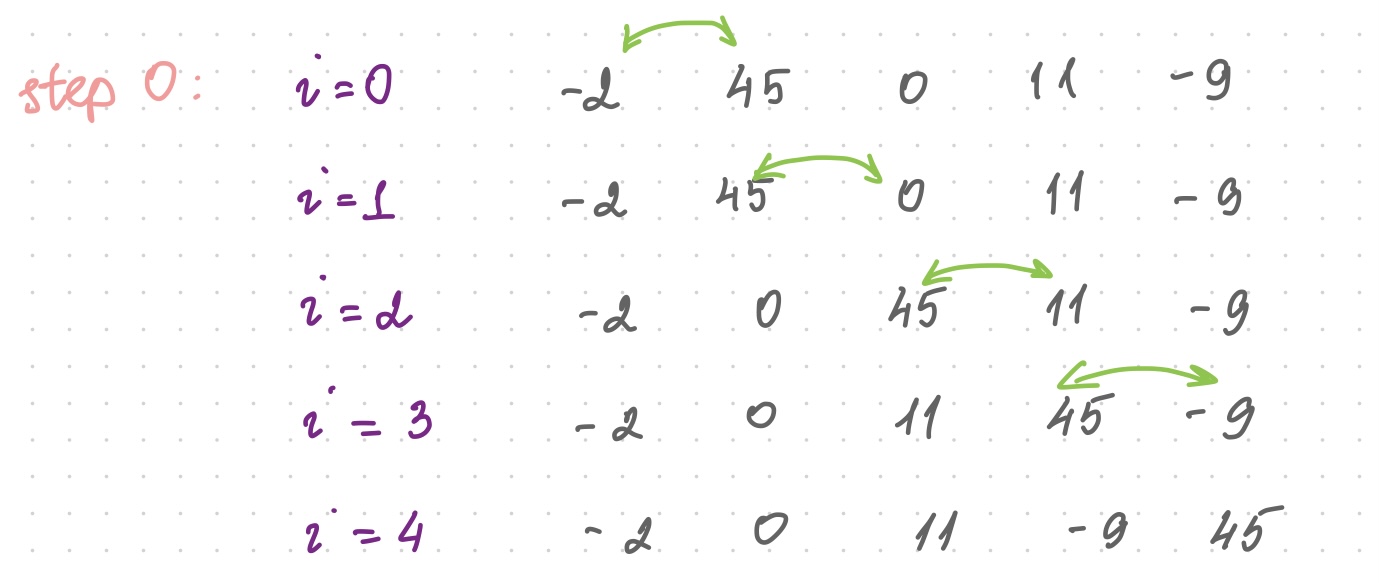 step 0: i=0 -2 45 0 11 -9
i=1 -2 45 0 11 -9
i=2 -2 0 45 11 -9
i=3 -2 0 11 45 -9
i=4 -2 0 11 -9 45